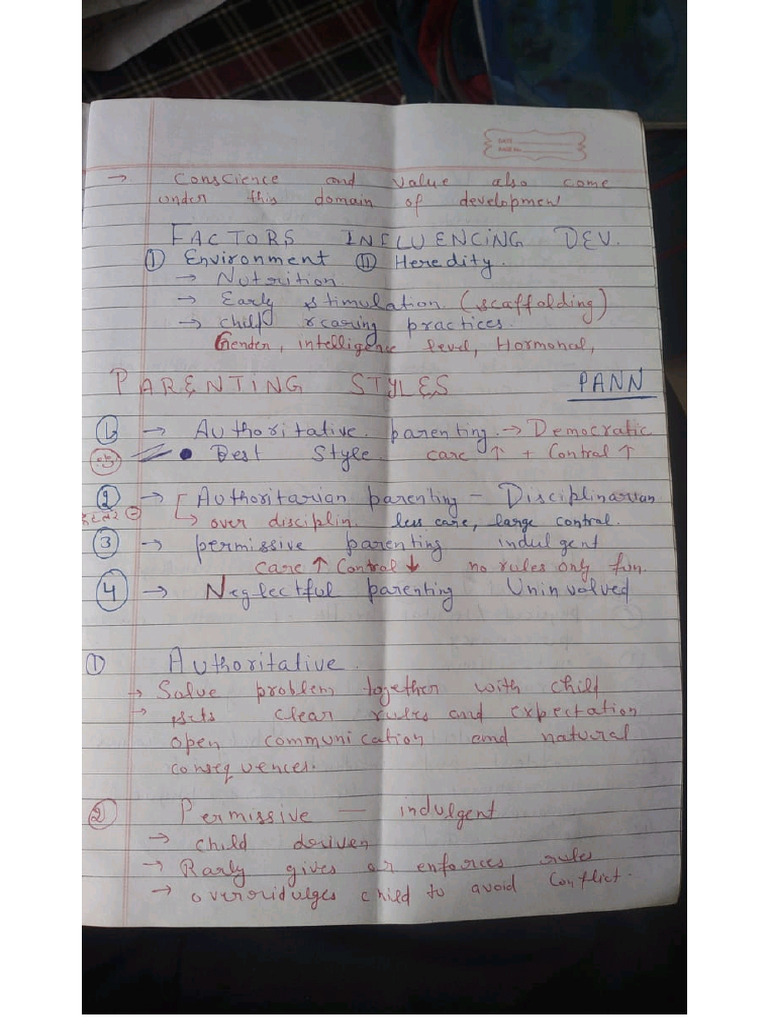 DATE
PAGE No.
→ Conscience and value also come
under this domain of developmen
FACTORS INFLUENCING DEV.
I Environment II Heredity.
→ Nutrition
→ Early stimulation (scaffolding)
→ child rearing practices.
Gender, intelligence level, Hormonal,
PARENTING STYLES PANN
1 → Authoritative parenting → Democratic
• Best Style. care ↑ + Control ↑
2 → Authoritarian parenting – Disciplinarian
↳ over disciplin. less care, large control.
3 → permissive parenting indulgent
care ↑ Control ↓ no rules only fun.
4 → Neglectful parenting Uninvolved
1 Authoritative.
→ Solve problem together with child
→ sets clear rules and expectation
open communication and natural
consequences.
2 Permissive — indulgent
→ child driven
→ Rarly gives or enforces rules
→ overidulges child to avoid conflict.